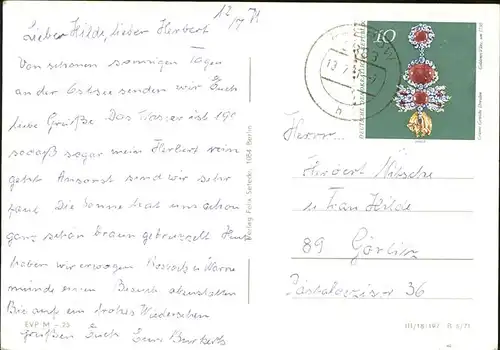 12/7 71
Lieber Hilde, lieber Herbert
Von schönen sonnigen Tagen
an der Ostsee senden wir Euch
liebe Grüße. Das Wasser ist 19°
sodaß sogar mein Herbert rein
geht. Ansonst sind wir sehr
faul. Die Sonne hat uns schon
ganz schön braun gebrutzelt. Heute
haben wir erwogen Rostock u Warne
münde einen Besuch abzustatten
Bis auf ein frohes Wiedersehen
grüßen Euch Eure
EVP M -,25
Verlag Felix Setecki, 1084 Berlin
10
DEUTSCHE DEMOKRATISCHE REPUBLIK
Grünes Gewölbe Dresden
Herrn
Herbert
u Frau Hilde
89 Görlitz
Pestalozzistr 36
III/18/197 B 5/71